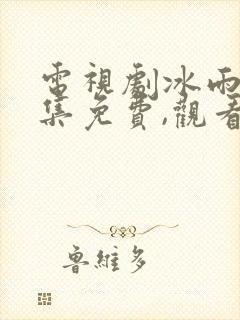 電視劇冰雨
集免費,觀看
魯維多